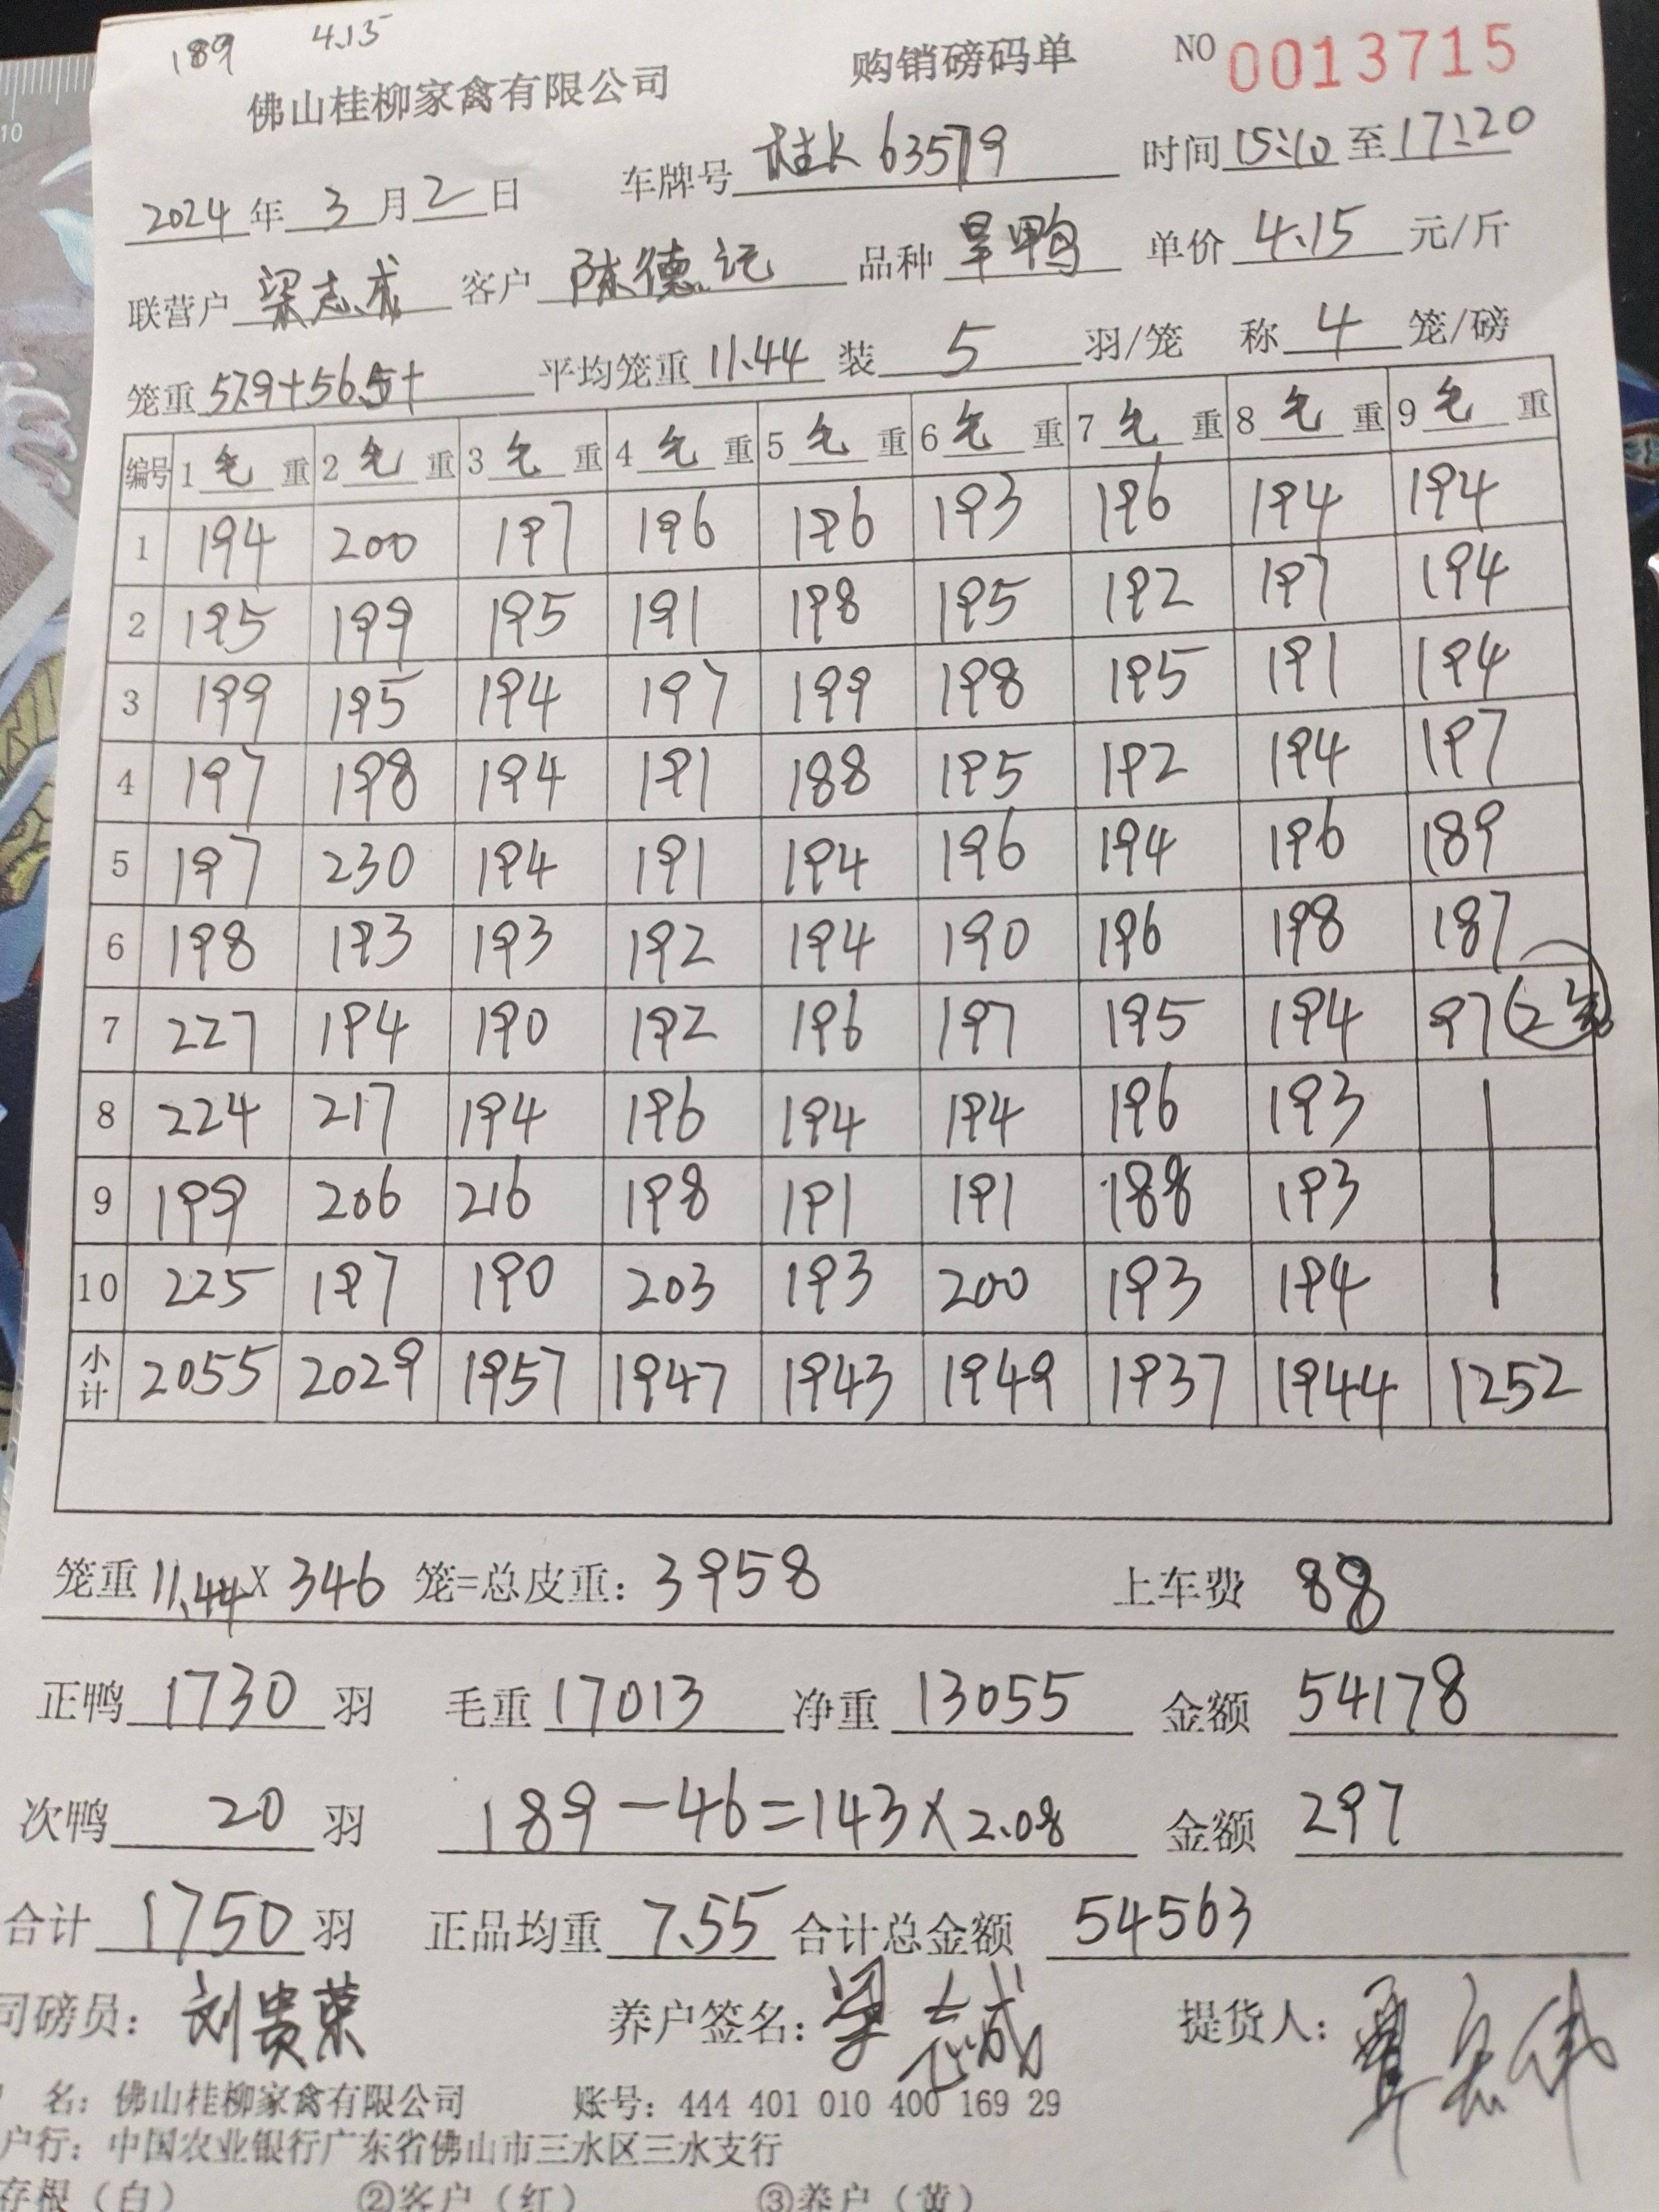 189 4.15
佛山桂柳家禽有限公司 购销磅码单 NO 0013715
2024年 3月 2日 车牌号 桂K 63579 时间 15:10 至 17:20
联营户 梁志成 客户 陈德记 品种 旱鸭 单价 4.15 元/斤
笼重 57.9+56.5+ 平均笼重 11.44 装 5 羽/笼 称 4 笼/磅
编号 1 毛 重 2 毛 重 3 毛 重 4 毛 重 5 毛 重 6 毛 重 7 毛 重 8 毛 重 9 毛 重
1 194 200 197 196 196 193 196 194 194
2 195 199 195 191 198 195 192 197 194
3 199 195 194 197 199 198 195 191 194
4 197 198 194 191 188 195 192 194 197
5 197 230 194 191 194 196 194 196 189
6 198 193 193 192 194 190 196 198 187
7 227 194 190 192 196 197 195 194 97 (2笼)
8 224 217 194 196 194 194 196 193
9 199 206 216 198 191 191 188 193
10 225 197 190 203 193 200 193 194
小计 2055 2029 1957 1947 1943 1949 1937 1944 1252
笼重 11.44 X 346 笼=总皮重: 3958 上车费 88
正鸭 1730 羽 毛重 17013 净重 13055 金额 54178
次鸭 20 羽 189-46=143×2.08 金额 297
合计 1750 羽 正品均重 7.55 合计总金额 54563
司磅员: 刘贵荣 养户签名: 梁志成 提货人:
名: 佛山桂柳家禽有限公司 账号: 444 401 010 400 169 29
户行: 中国农业银行广东省佛山市三水区三水支行
存根（白） ②客户（红） ③养户（黄）